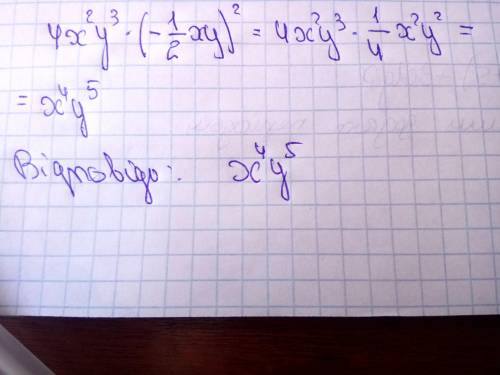 4x²y³·(-1/2xy)² = 4x²y³·1/4x²y² =
= x⁴y⁵
Відповідь: x⁴y⁵